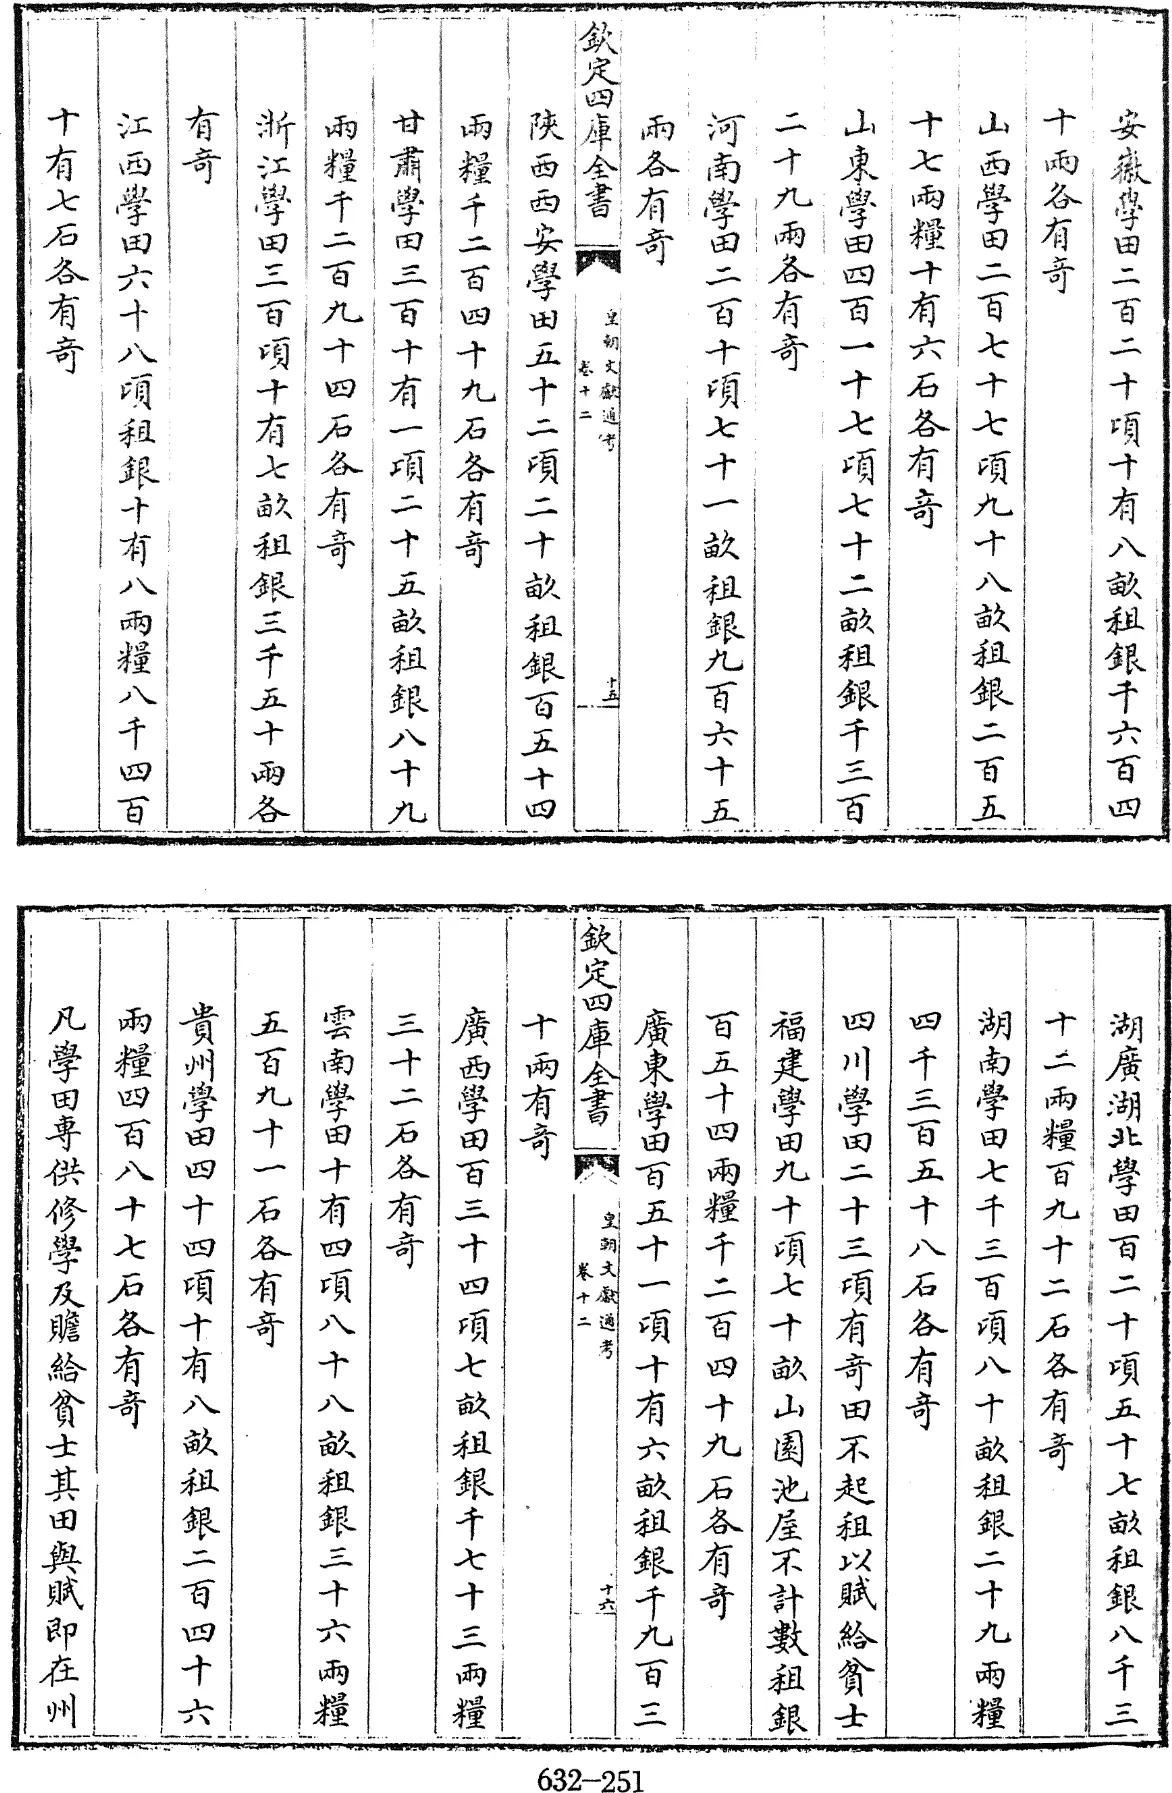 安徽學田二百二十頃十有八畝租銀千六百四
十兩各有奇
山西學田二百七十七頃九十八畝租銀二百五
十七兩糧十有六石各有奇
山東學田四百一十七頃七十二畝租銀千三百
二十九兩各有奇
河南學田二百十頃七十一畝租銀九百六十五
兩各有奇
欽定四庫全書
皇朝文獻通考
卷十二
十五
陝西西安學田五十二頃二十畝租銀百五十四
兩糧千二百四十九石各有奇
甘肅學田三百十有一頃二十五畝租銀八十九
兩糧千二百九十四石各有奇
浙江學田三百頃十有七畝租銀三千五十兩各
有奇
江西學田六十八頃租銀十有八兩糧八千四百
十有七石各有奇
湖廣湖北學田百二十頃五十七畝租銀八千三
十二兩糧百九十二石各有奇
湖南學田七千三百頃八十畝租銀二十九兩糧
四千三百五十八石各有奇
四川學田二十三頃有奇田不起租以賦給貧士
福建學田九十頃七十畝山園池屋不計數租銀
百五十四兩糧千二百四十九石各有奇
廣東學田百五十一頃十有六畝租銀千九百三
欽定四庫全書
皇朝文獻通考
卷十二
十六
十兩有奇
廣西學田百三十四頃七畝租銀千七十三兩糧
三十二石各有奇
雲南學田十有四頃八十八畝租銀三十六兩糧
五百九十一石各有奇
貴州學田四十四頃十有八畝租銀二百四十六
兩糧四百八十七石各有奇
凡學田專供修學及贍給貧士其田與賦即在州
632-251